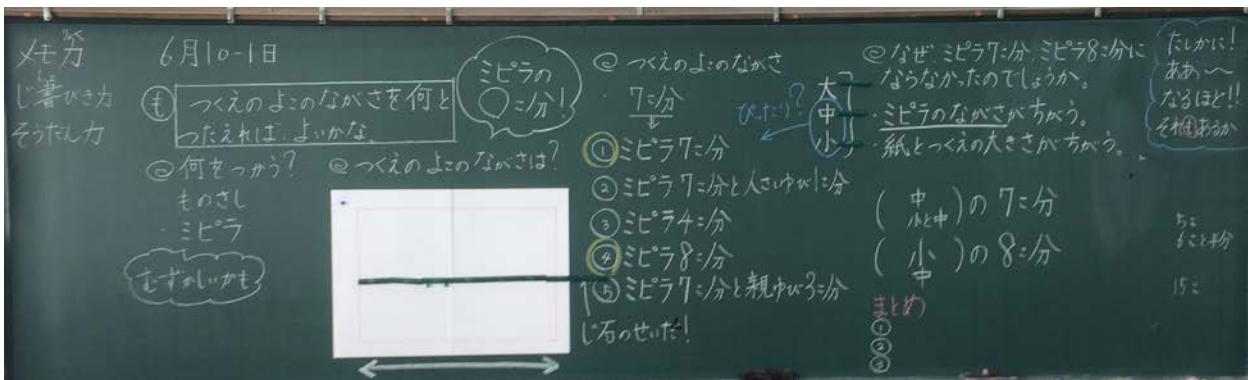 メモ力
じ書びき力
そうだん力
6月10-1日
も
つくえのよこのながさを何と
つたえれば、よいかな。
ミピラの
○こ分!
◎何をつかう?
ものさし
・ミピラ
むずかしいかも
◎つくえのよこのながさは?
◎つくえのよこのながさ
・7こ分
①ミピラ7こ分
②ミピラ7こ分と人さしゆび1こ分
③ミピラ4こ分
④ミピラ8こ分
⑤ミピラ7こ分と親ゆび3こ分
じ石のせいだ!
ぴったり?
大
中
小
◎なぜ、ミピラ7こ分、ミピラ8こ分に
ならなかったのでしょうか。
・ミピラのながさがちがう。
・紙とつくえの大きさがちがう。
(中 小と中)の7こ分
(小 中)の8こ分
まとめ
①
②
③
たしかに!
ああ〜
なるほど!!
それもあるか
5こ
6こと半分
15こ